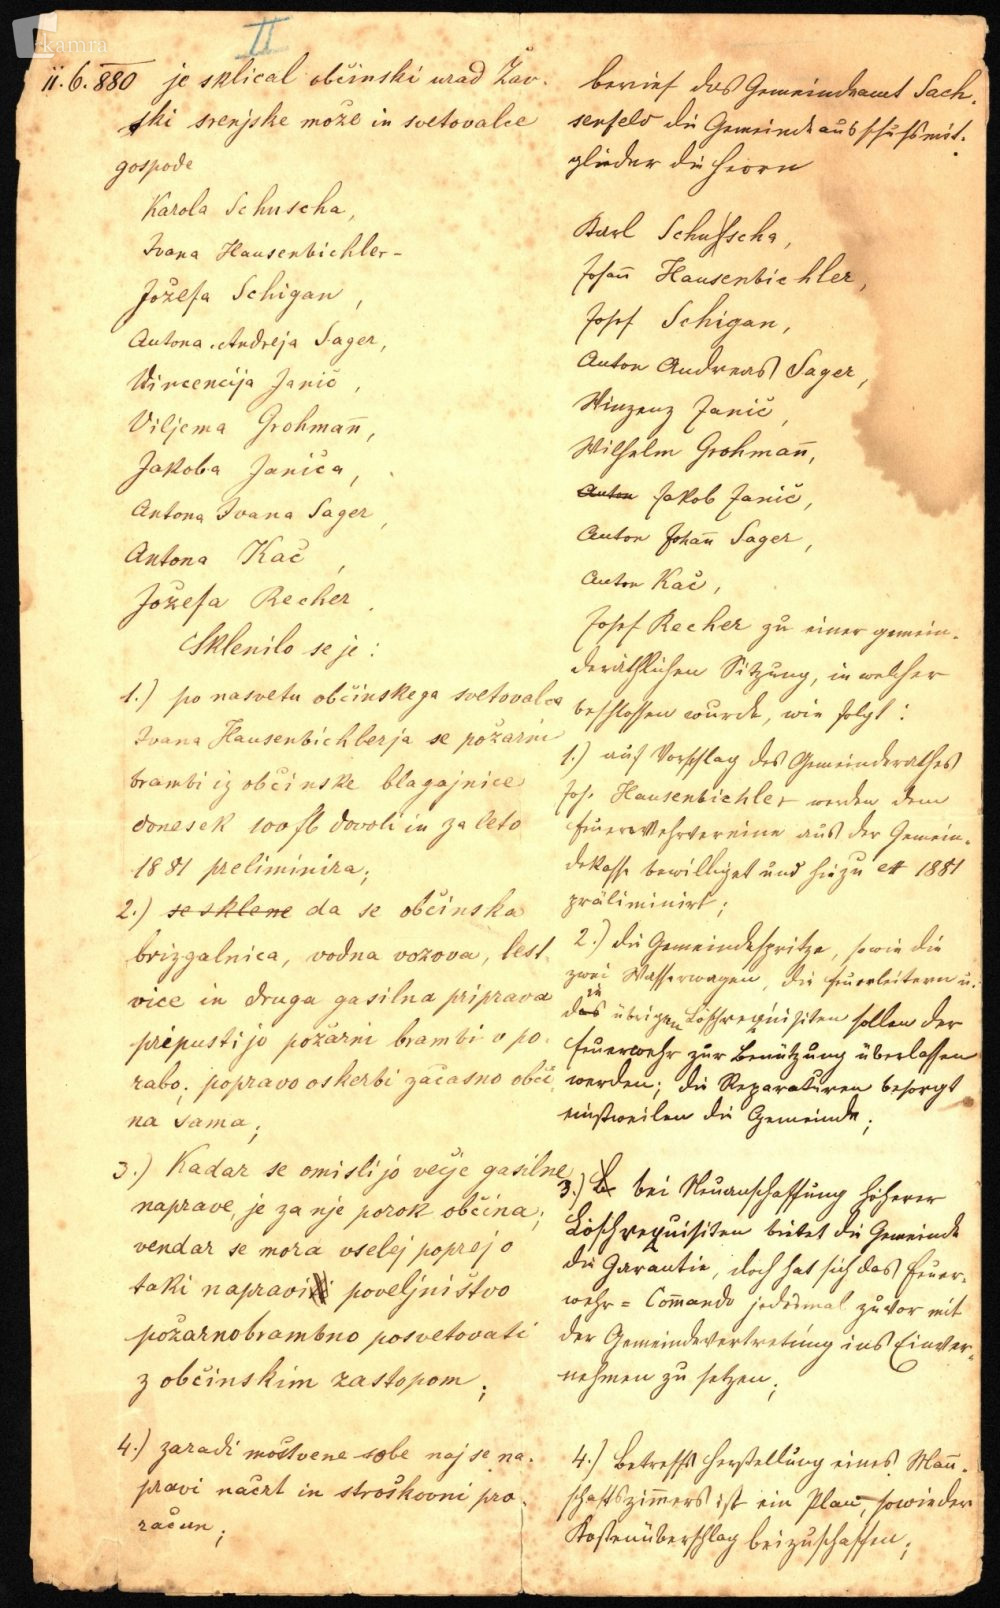 kamra
II
11.6.880 je sklical občinski urad Žav-
ski srenjske može in svetovalce
gospode
Karola Schuscha,
Ivana Hausenbichler-
Jožefa Schigan,
Antona Andreja Sager,
Vincencija Janič,
Viljema Grohmañ,
Jakoba Janiča,
Antona Ivana Sager,
Antona Kač,
Jožefa Recher.
Sklenilo se je:
1.) po nasvetu občinskega svetovalca
Ivana Hausenbichlerja se požarni
brambi iz občinske blagajnice
donesek 100 fl dovoli in za leto
1881 preliminira;
2.) se sklene da se občinska
brizgalnica, vodna vozova, lest-
vice in druga gasilna priprava
prepustijo požarni brambi v po-
rabo; popravo oskerbi začasno obči-
na sama;
3.) Kadar se omislijo večje gasilne
naprave, je za nje porok občina;
vendar se mora vselej poprej o
taki napravi poveljništvo
požarnobrambno posvetovati
z občinskim zastopom;
4.) zaradi moštvene sobe naj se na-
pravi načrt in stroškovni pro-
račun;
berief das Gemeindeamt Sach-
senfeld die Gemeindeausschußmit-
glieder die Herrn
Karl Schuscha,
Johañ Hausenbichler,
Josef Schigan,
Anton Andreas Sager,
Winzenz Janič,
Wilhelm Grohmañ,
Anton Jakob Janič,
Anton Johañ Sager,
Anton Kač,
Josef Recher zu einer gemein-
deräthlichen Sitzung, in welcher
beschlossen wurde, wie folgt:
1.) auf Vorschlag des Gemeinderathes
Joh. Hausenbichler werden dem
Feuerwehrvereine aus der Gemein-
dekasse bewilliget und hiezu 1881
präliminirt;
2.) die Gemeindespritze, sowie die
zwei Wasserwagen, die Feuerleitern u.
die übrigen Löschrequisiten sollen der
Feuerwehr zur Benützung überlassen
werden; die Reparaturen besorgt
einstweilen die Gemeinde;
3.) bei Neuanschaffung höherer
Löschrequisiten bietet die Gemeinde
die Garantie, doch hat sich das Feuer-
wehr=Com̄ando jedesmal zuvor mit
der Gemeindevertretung ins Einver-
nehmen zu setzen;
4.) Betreffs Herstellung eines Mañ-
schaftszim̄ers ist ein Plan, sowie der
Kostenüberschlag beizuschaffen;